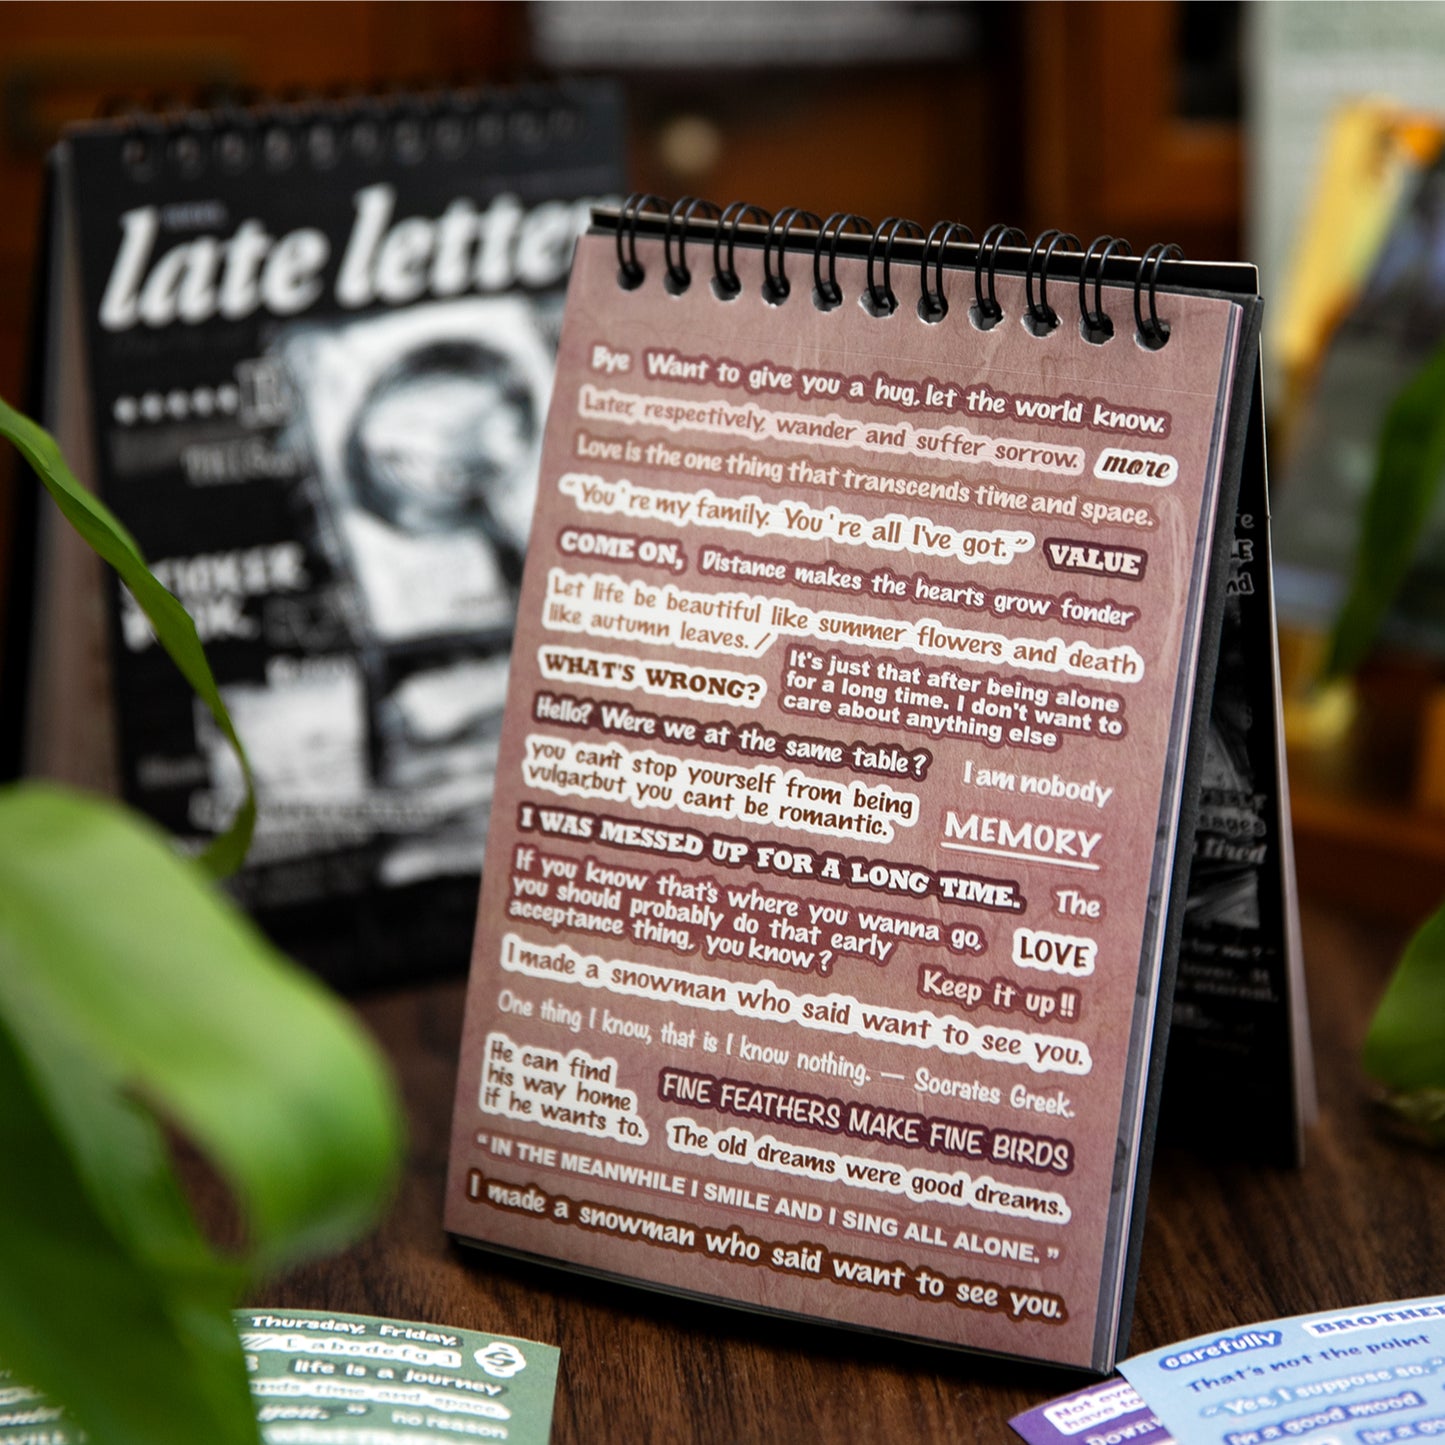 late letter
STICKER
Bye Want to give you a hug, let the world know.
Later, respectively, wander and suffer sorrow. more
Love is the one thing that transcends time and space.
“You're my family. You're all I've got.” VALUE
COME ON, Distance makes the hearts grow fonder
Let life be beautiful like summer flowers and death
like autumn leaves. /
WHAT'S WRONG?
It's just that after being alone
for a long time. I don't want to
care about anything else
Hello? Were we at the same table?
I am nobody
you can't stop yourself from being
vulgar,but you cant be romantic.
MEMORY
I WAS MESSED UP FOR A LONG TIME.
The
If you know that's where you wanna go,
you should probably do that early
acceptance thing, you know?
LOVE
Keep it up!!
I made a snowman who said want to see you.
One thing I know, that is I know nothing. — Socrates Greek.
He can find
his way home
if he wants to.
FINE FEATHERS MAKE FINE BIRDS
The old dreams were good dreams.
“IN THE MEANWHILE I SMILE AND I SING ALL ALONE.”
I made a snowman who said want to see you.
Thursday, Friday,
abcdefg
life is a journey
time and space
no reason
carefully BROTHER
That's not the point
Yes, I suppose so.
in a good mood
Not eve
have to
Down